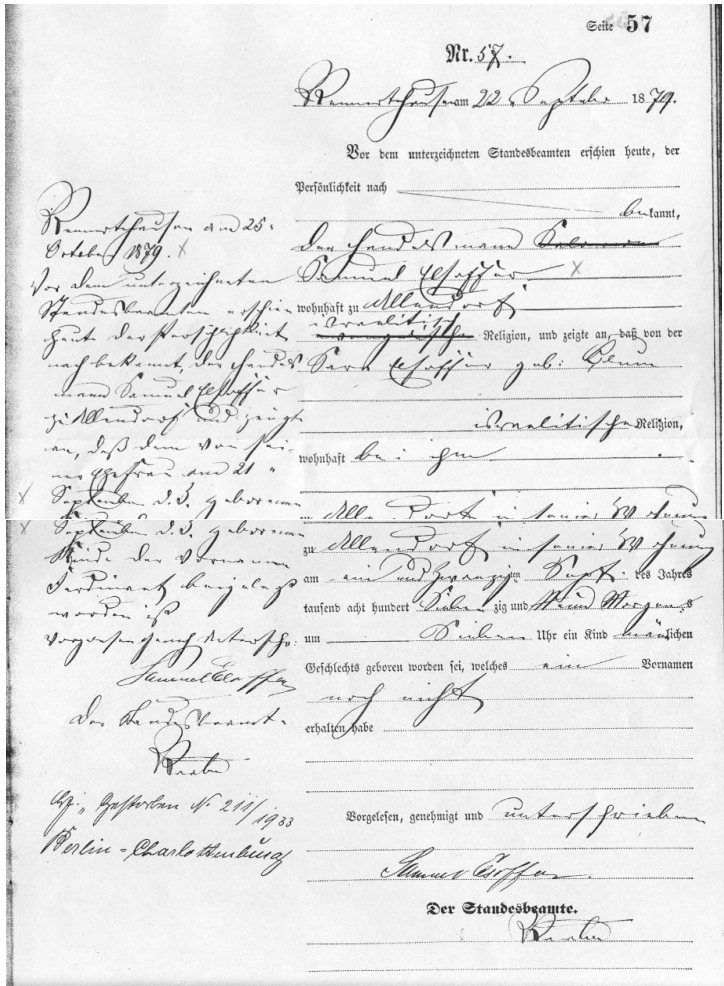 Seite 57
Nr. 57.
Rennertehausen am 22 September 1879.
Vor dem unterzeichneten Standesbeamten erschien heute, der
Persönlichkeit nach
bekannt,
der Handelsmann Salomon
Samuel Elsoffer X
wohnhaft zu Allendorf
israelitischer
Religion, und zeigte an, daß von der
Sara Elsoffer geb: Blum
israelitischer Religion,
wohnhaft bei ihm
zu Allendorf in seiner Wohnung
am ein und zwanzigsten Sept. des Jahres
tausend acht hundert Siebenzig und Neun Morgens
um Sieben Uhr ein Kind männlichen
Geschlechts geboren worden sei, welches ein Vornamen
noch nicht
erhalten habe
Vorgelesen, genehmigt und unterschrieben
Samuel Elsoffer.
Der Standesbeamte.
Rennertehausen am 25.
October 1879. X
Vor dem unterzeichneten
Standesbeamten erschien
heute der Persönlichkeit
nach bekannt, der Handels
mann Samuel Elsoffer
zu Allendorf und zeigte
an, daß dem von sei-
ner Ehefrau am 21
X September d. J. geborenen
X September d. J. geborenen
Kinde der Vornamen
Ferdinant beigelegt
worden ist
Vorgelesen genehmigt Unterschr:
Samuel Elsoffer
Der Standesbeamte.
Gestorben Nr. 211/1933
Berlin-Charlottenburg